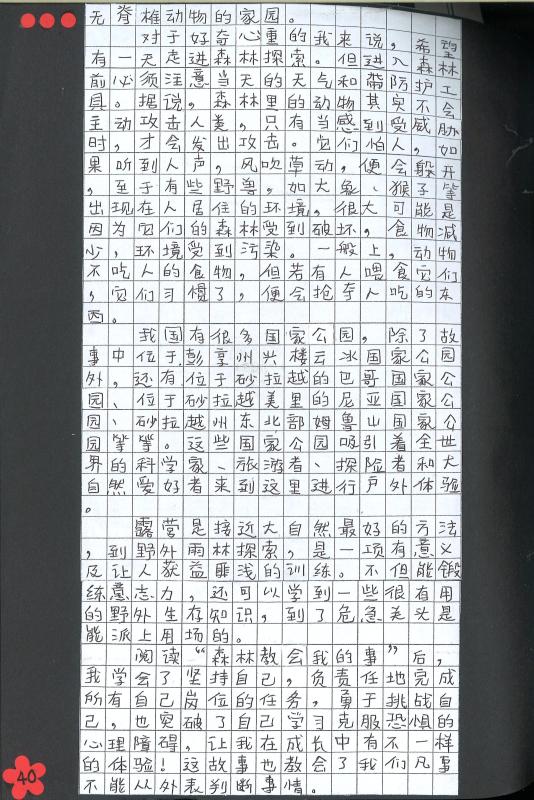 无脊椎动物的家园。
对于好奇心重的我来说，希望
有一天走进森林探索。但进入森林
前必须注意当天的天气和带防护工
具。据说，森林里的动物其实不会
主动攻击人类，只有当感到受威胁
时，才会发出攻击。它们怕人，如
果听到人声，风吹草动，便会躲开
，至于有些野兽，如大象、猴子等
出现在人居住的环境，很大可能是
因为它们的森林受到破坏，食物减
少，环境受到污染。一般上，动物
不吃人的食物，但若有人喂食它们
，它们习惯了，便会抢夺人吃的东
西。
我国有很多国家公园，除了故
事中位于彭亨州兴楼云冰国家公园
外，还有位于砂拉越的巴哥国家公
园、位于砂拉越美里的尼亚国家公
园、砂拉越州东北部姆鲁山国家公
园等等。这些国家公园吸引着全世
界的科学家、旅游者、探险者和大
自然爱好者来到这里进行户外体验
。
露营是接近大自然最好的方法
，到野外雨林探索，是一项有意义
及让人获益匪浅的训练。不但能锻
练意志力，还可以学到一些很有用
的野外生存知识，到了危急关头是
能派上用场的。
阅读“森林教会我的事”后，
我学会了坚持自己，负责任地完成
所有自己岗位的任务，勇于挑战自
己，也突破了自己学习克服恐惧的
心理障碍，让我在成长中有不一样
的体验！这故事也教会了我们凡事
不能从外表判断事情。
40